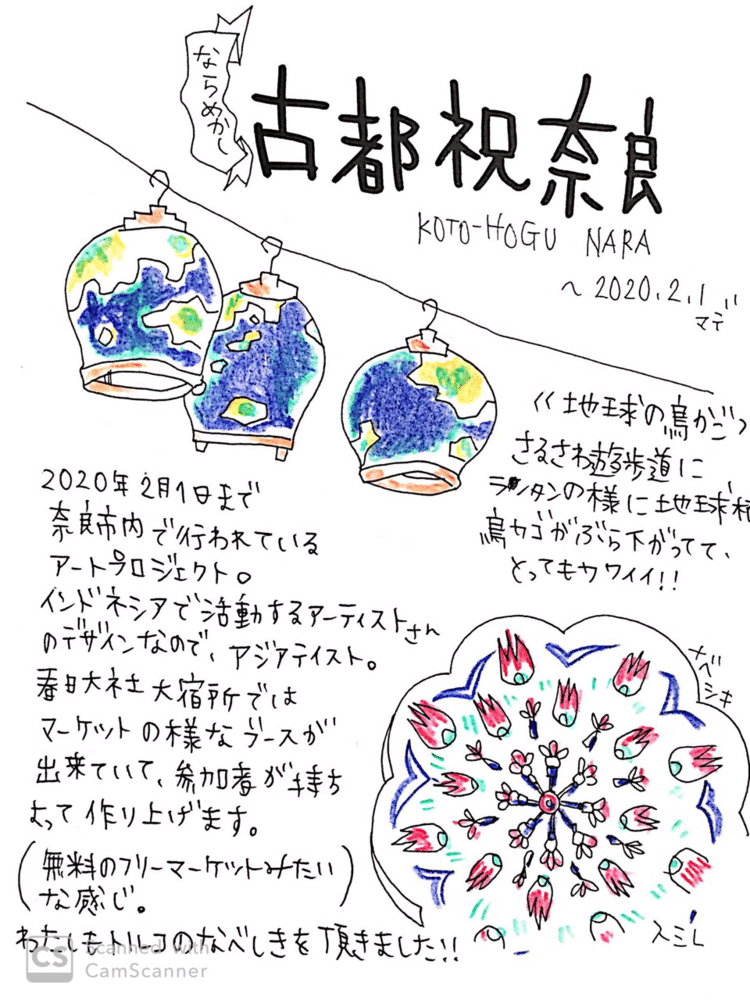 ならめかし
古都祝奈良
KOTO-HOGU NARA
～2020.2.1
マデ
<<地球の鳥かご>
さるさわ遊歩道に
ランタンの様に地球柄
鳥カゴがぶら下がってて、
とってもカワイイ!!
2020年2月1日まで
奈良市内で行われている
アートプロジェクト。
インドネシアで活動するアーティストさん
のデザインなので、アジアテイスト。
春日大社 大宿所では
マーケットの様なブースが
出来ていて、参加者が持ち
よって作り上げます。
(無料のフリーマーケットみたい
な感じ。)
わたしもトルコのなべしきを頂きました!!
ナベ
シキ
スミレ
CS Scanned with
CamScanner